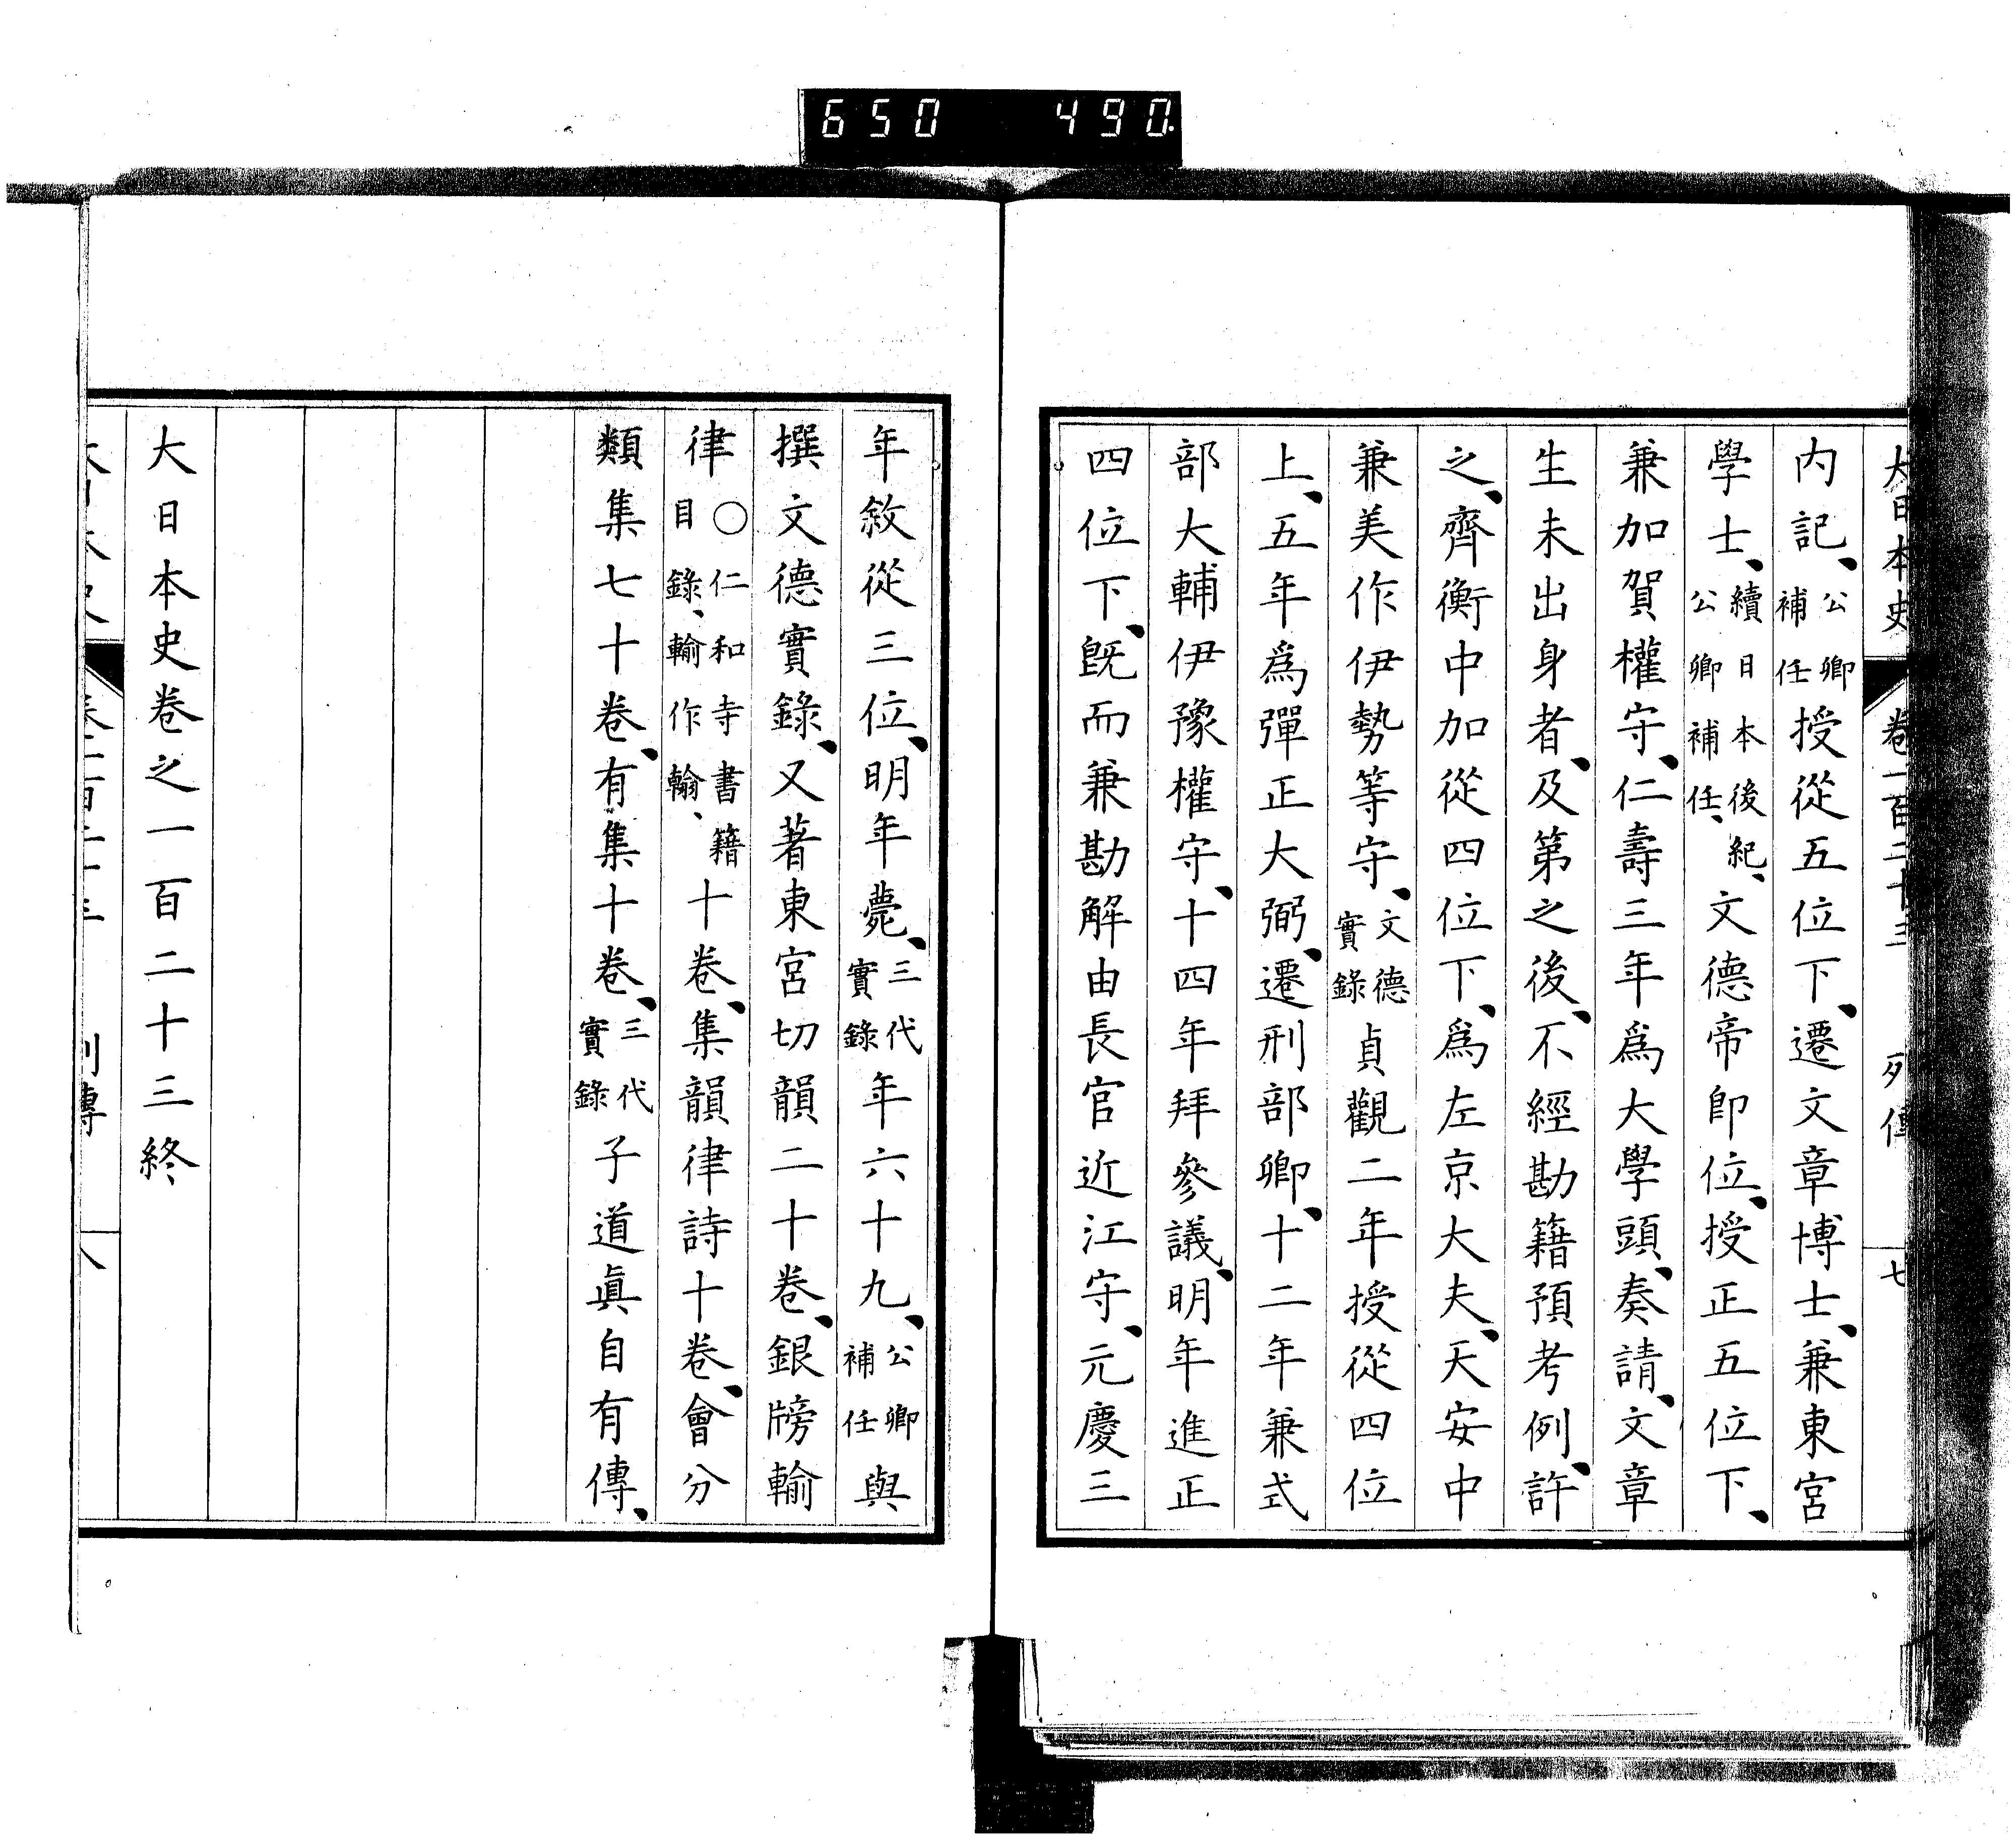 650 490
大日本史 卷一百二十三 列傳 七
內記、公卿補任授從五位下、遷文章博士、兼東宮
學士、續日本後紀、公卿補任、文德帝卽位、授正五位下、
兼加賀權守、仁壽三年爲大學頭、奏請、文章
生未出身者、及第之後、不經勘籍預考例、許
之、齊衡中加從四位下、爲左京大夫、天安中
兼美作伊勢等守、文德實錄貞觀二年授從四位
上、五年爲彈正大弼、遷刑部卿、十二年兼式
部大輔伊豫權守、十四年拜參議、明年進正
四位下、旣而兼勘解由長官近江守、元慶三
年敘從三位、明年薨、三代實錄年六十九、公卿補任與
撰文德實錄、又著東宮切韻二十卷、銀牓輸
律〇仁和寺書籍目錄、輸作翰、十卷、集韻律詩十卷、會分
類集七十卷、有集十卷、三代實錄子道眞自有傳、
大日本史卷之一百二十三終
列傳 八